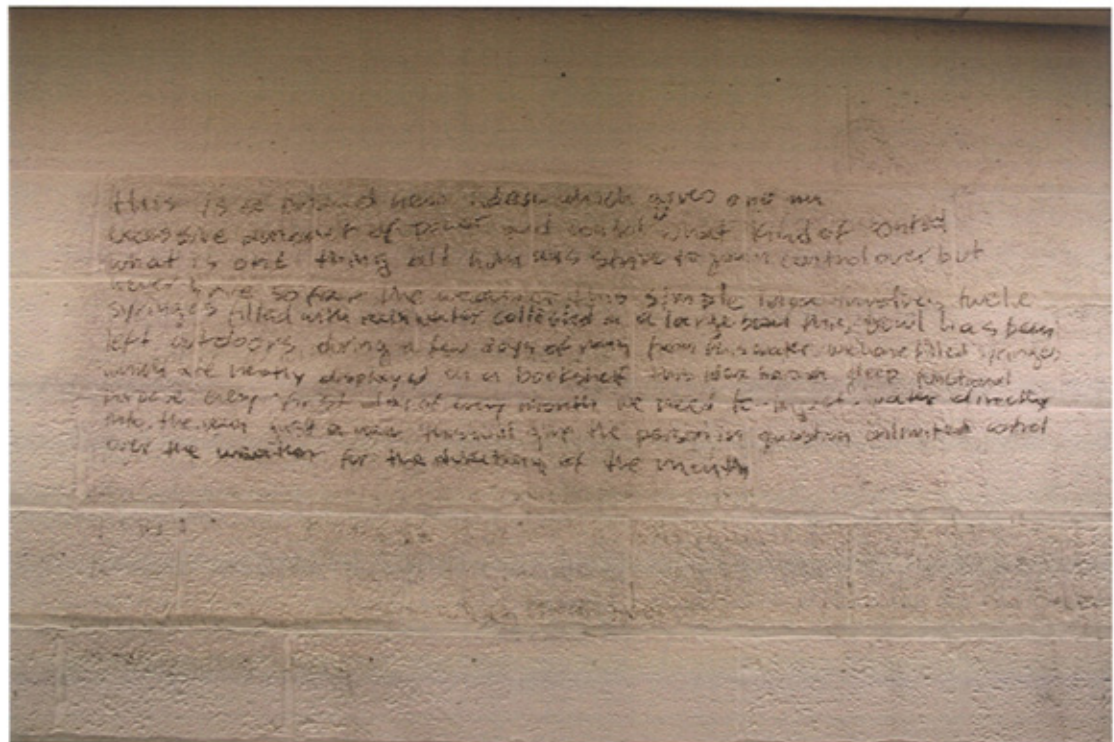 this is a brand new idea which gives one an
excessive amount of power and control what kind of control
what is one thing all humans strive to gain control over but
never have so far the weather this simple involves twelve
syringes filled with rain water collected in a large bowl this bowl has been
left outdoors during a few days of rain from this water we have filled syringes
which are neatly displayed on a bookshelf this idea has a deep functional
every first day of every month we need to inject water directly
into the vein just a this will give the person in question unlimited control
over the weather for the of the month